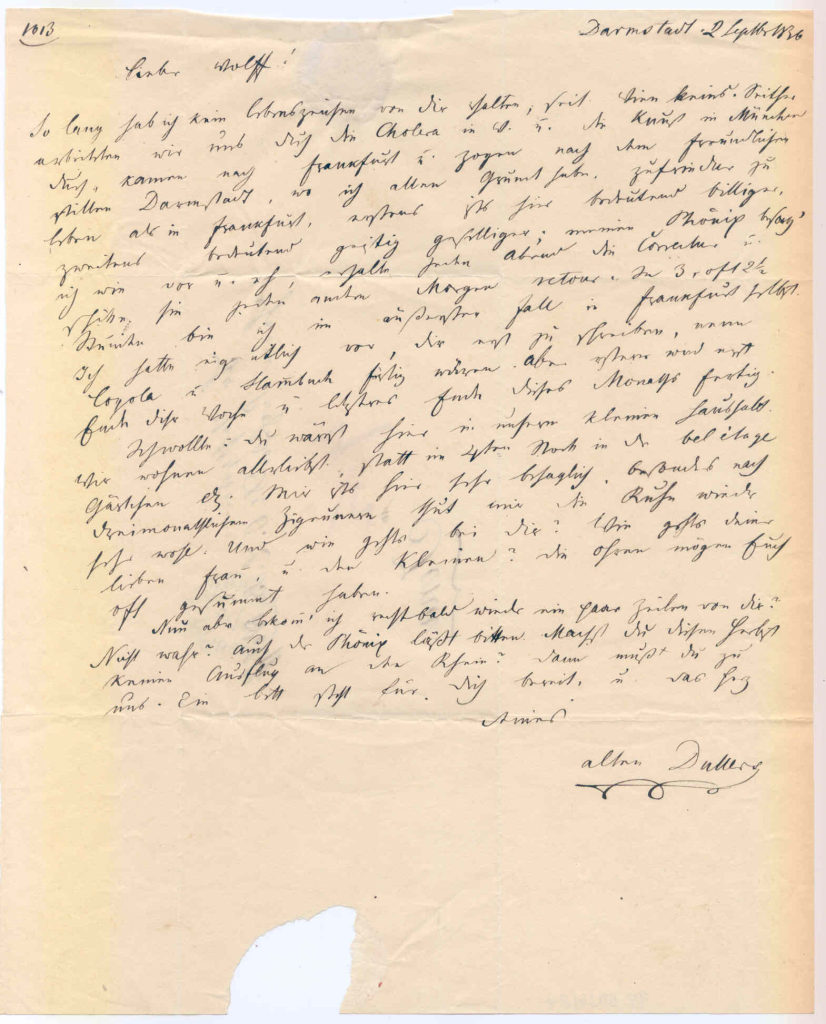 1013
Darmstadt. 2 Septbr 1836
Lieber Wolff!
So lang hab ich kein Lebenszeichen von dir erhalten, seit Wien keins. Seither
arbeiteten wir uns durch die Cholera in W. u. die Kunst in München
durch, kamen nach Frankfurt u. zogen nach dem freundlichen
stillen Darmstadt, wo ich allen Grund habe, zufriedner zu
leben als in Frankfurt, erstens ists hier bedeutend billiger,
zweitens bedeutend geistig geselliger; meinen Phönix besorg'
ich wie vor u. eh, erhalte jeden Abend die Correctur u.
schicke sie jeden andern Morgen retour. In 3, oft 2½
Stunden bin ich im äußersten Fall in Frankfurt selbst.
Ich hatte eigentlich vor, dir erst zu schreiben, wenn
Loyola u. fertig wären. Aber erstrer wird erst
Ende dieser Woche u letztres Ende dieses Monaths fertig.
Ich wollte: du wärest hier in unserm kleinen Haushalt.
Wir wohnen allerliebst, statt im 4ten Stock in der bel étage
Gärtchen etc. Mir ists hier sehr behaglich, besonders nach
dreimonathlichem Zigeunern thut mir die Ruhe wieder
sehr wohl. Und wie gehts bei dir? Wie gehts deiner
lieben Frau, u. den Kleinen? Die Ohren mögen Euch
oft gesummt haben.
Nun aber bekomm' ich recht bald wieder ein paar Zeilen von dir?
Nicht wahr? Auch der Phönix läßt bitten. Machst du diesen Herbst
keinen Ausflug an den Rhein? Dann mußt du zu
uns. Ein Bett steht für dich bereit, u. das Herz
Deines
alten Dullers